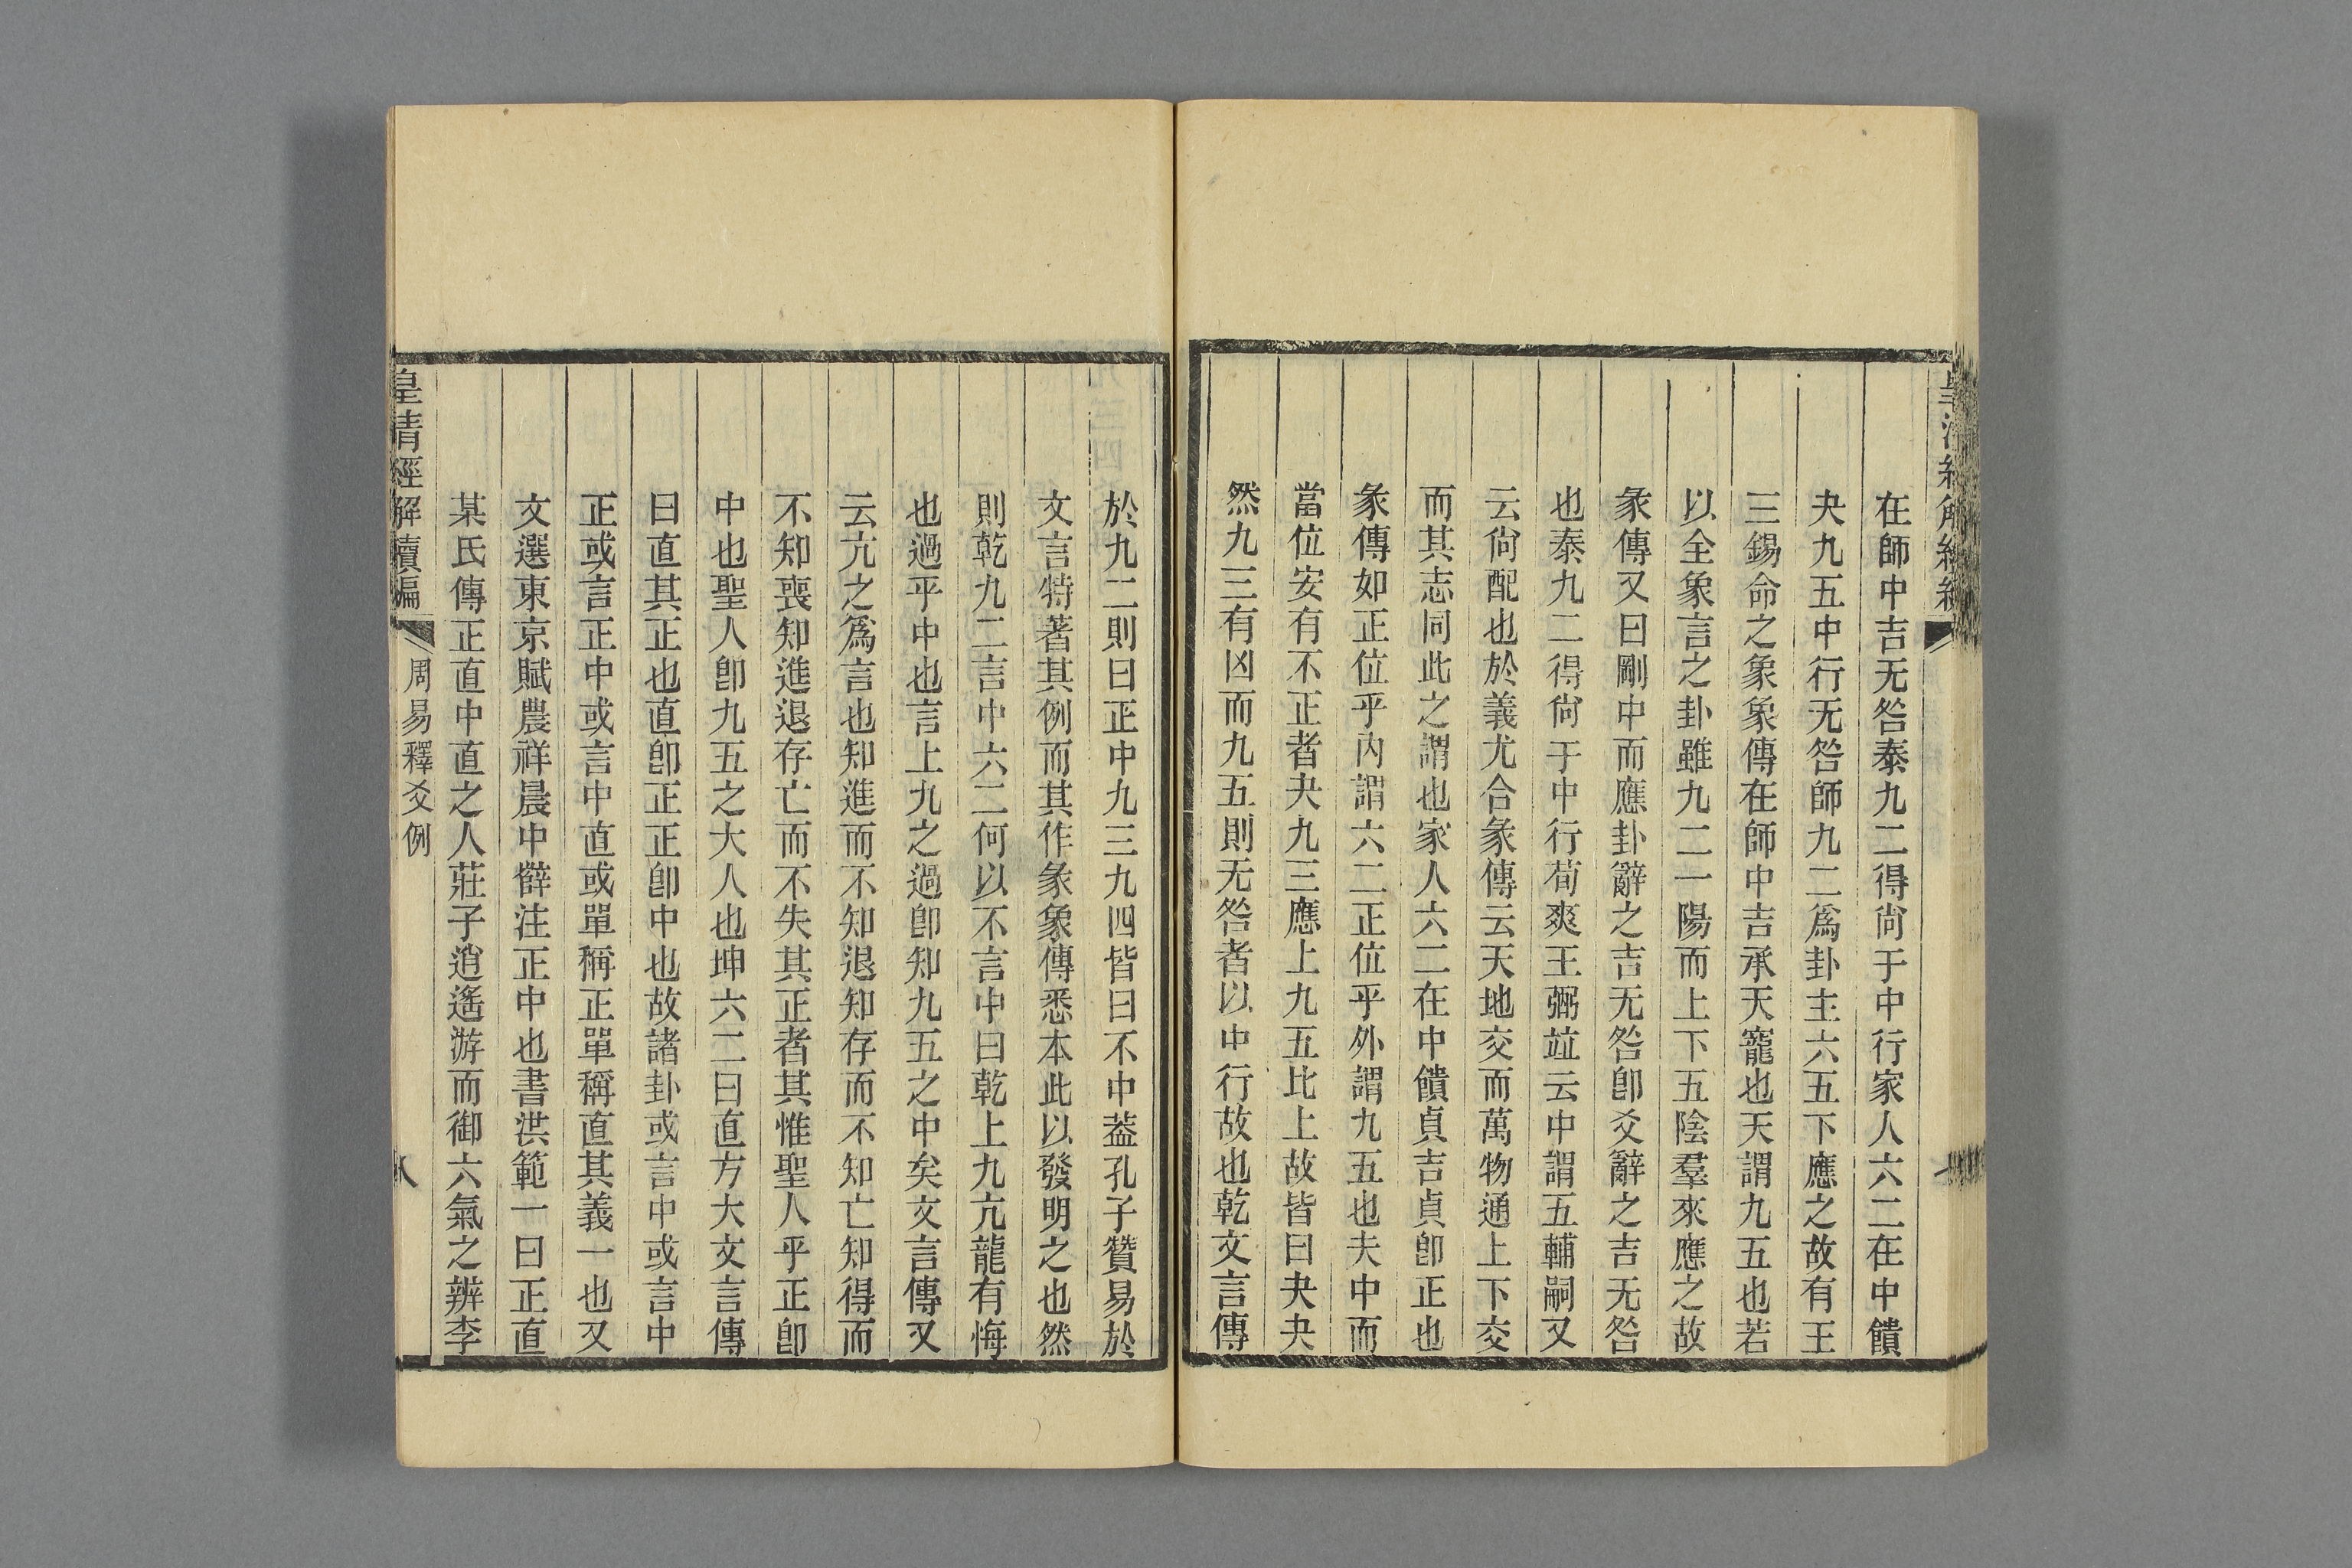 在師中吉无咎泰九二得尙于中行家人六二在中饋
夬九五中行无咎師九二爲卦主六五下應之故有王
三錫命之象象傳在師中吉承天寵也天謂九五也若
以全象言之卦雖九二一陽而上下五陰羣來應之故
彖傳又曰剛中而應卦辭之吉无咎卽爻辭之吉无咎
也泰九二得尙于中行荀爽王弼竝云中謂五輔嗣又
云尙配也於義尤合彖傳云天地交而萬物通上下交
而其志同此之謂也家人六二在中饋貞吉貞卽正也
彖傳如正位乎內謂六二正位乎外謂九五也夫中而
當位安有不正者夬九三應上九五比上故皆曰夬夬
然九三有凶而九五則无咎者以中行故也乾文言傳
於九二則曰正中九三九四皆曰不中葢孔子贊易於
文言特著其例而其作彖象傳悉本此以發明之也然
則乾九二言中六二何以不言中曰乾上九亢龍有悔
也過乎中也言上九之過卽知九五之中矣文言傳又
云亢之爲言也知進而不知退知存而不知亡知得而
不知喪知進退存亡而不失其正者其惟聖人乎正卽
中也聖人卽九五之大人也坤六二曰直方大文言傳
曰直其正也直卽正正卽中也故諸卦或言中或言中
正或言正中或言中直或單稱正單稱直其義一也又
文選東京賦農祥晨中薛注正中也書洪範一曰正直
某氏傳正直中直之人莊子逍遙游而御六氣之辨李
皇清經解續編
周易釋爻例
八